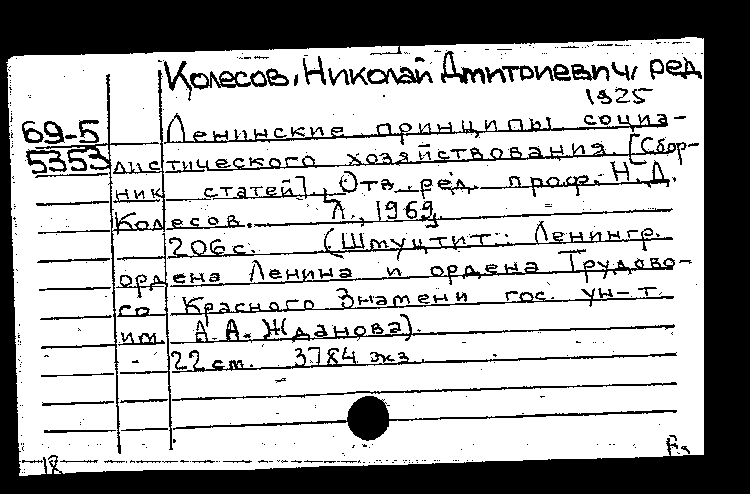 Колесов, Николай Дмитриевич, ред
1925
69-5 Ленинские принципы социа-
5353 листического хозяйствования. [Сбор-
ник статей]. Отв. ред. проф. Н. Д.
Колесов. Л., 1969.
206 с. (Шмуцтит.: Ленингр.
ордена Ленина и ордена Трудово-
го Красного Знамени гос. ун-т
им. А. А. Жданова).
- 22 см. 3784 экз.
18